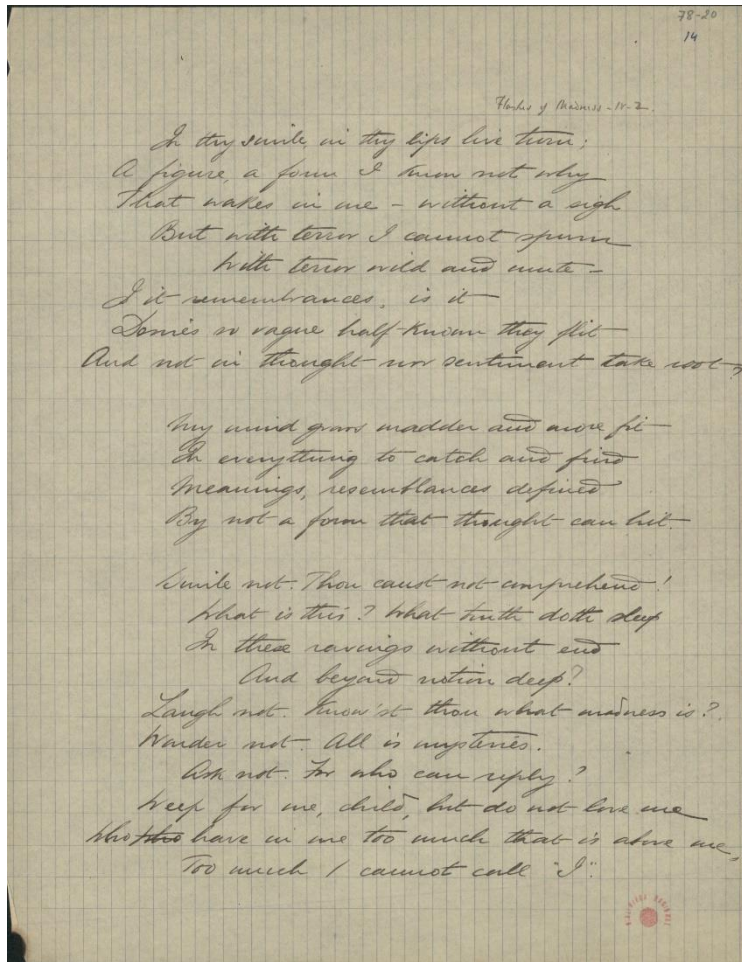 78-20
14
Flashes of Madness - IV - 2.
In thy smile, in thy lips live turn;
A figure, a form I know not why
That wakes in me – without a sigh
But with terror I cannot spurn
With terror wild and mute –
Is it remembrances, is it
Desires so vague half-known they flit
And not in thought nor sentiment take root?
My mind grows madder and more fit
In everything to catch and find
Meanings, resemblances defined
By not a form that thought can hit.
Smile not. Thou canst not comprehend!
What is this? What truth doth sleep
In these ravings without end
And beyond notion deep?
Laugh not. Know'st thou what madness is?
Wonder not. All is mysteries.
Ask not. For who can reply?
Weep for me, child, but do not love me
Who have in me too much that is above me,
Too much I cannot call "I".